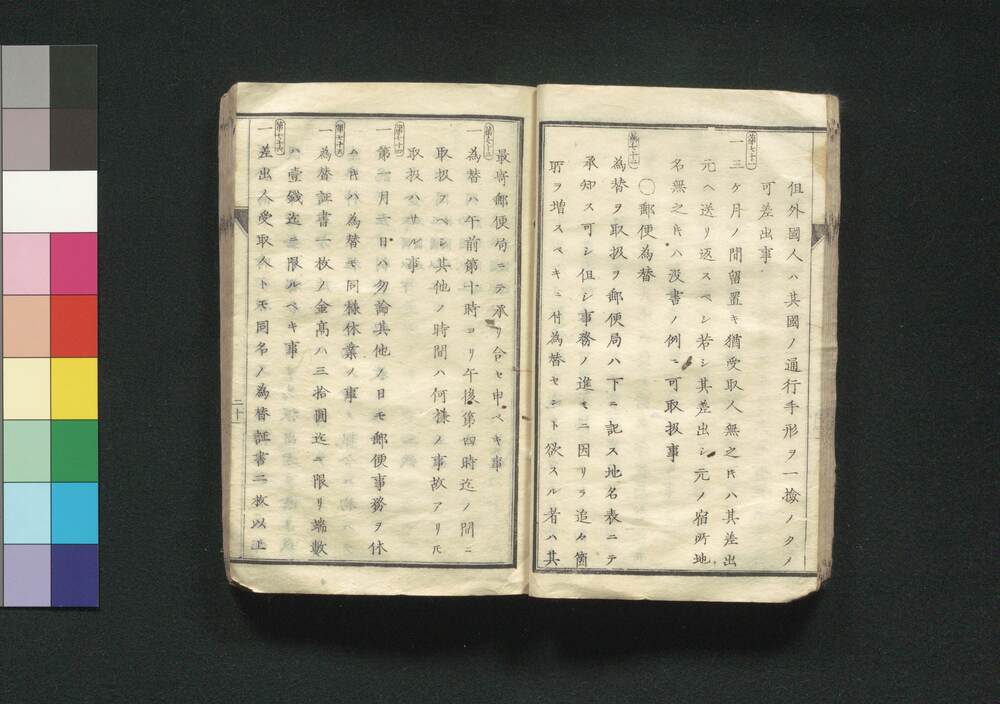 但外國人ハ其國ノ通行手形ヲ一撿ノタメ
可差出事
第七十一
一三ケ月ノ間留置キ猶受取人無之片ハ其差出
元ヘ送リ返スベシ若シ其差出シ元ノ宿所地
名無之片ハ没書ノ例ニ可取扱事
○郵便為替
第七十二
為替ヲ取扱フ郵便局ハ下ニ記ス地名表ニテ
承知ス可シ但シ事務ノ進ムニ因リヲ追々箇
所ヲ増スベキニ付為替セント欲スル者ハ其
最寄郵便局ニテ承リ合セ申ベキ事
第七十三
一為替ハ午前第十時ヨリ午後第四時迄ノ間ニ
取扱フベシ其他ノ時間ハ何樣ノ事故アリ𪜈
取扱ハサル事
第七十四
一第一月一日ハ勿論其他ノ日モ郵便事務ヲ休
ム片ハ為替モ同樣休業ノ事
第七十五
一為替証書一枚ノ金高ハ三拾圓迄ニ限リ端數
ハ壹錢迄ニ限ルベキ事
第七十六
一差出人受取人トモ同名ノ為替証書二枚以上
二十